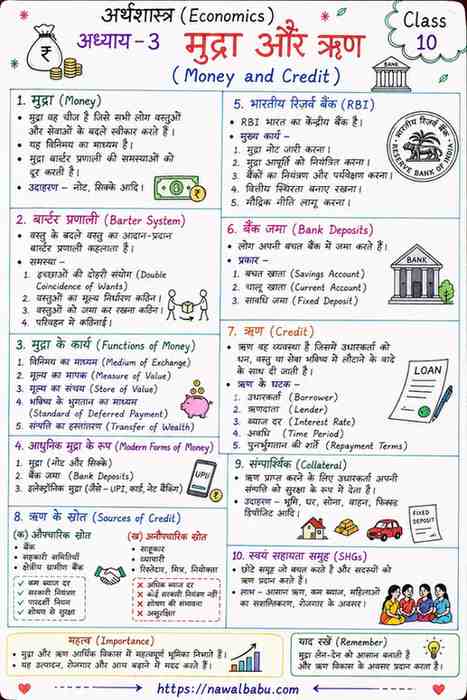 अर्थशास्त्र (Economics)
अध्याय - 3 मुद्रा और ऋण
(Money and Credit)
Class
10
BANK
1. मुद्रा (Money)
• मुद्रा वह चीज है जिसे सभी लोग वस्तुओं
और सेवाओं के बदले स्वीकार करते हैं।
• यह विनिमय का माध्यम है।
• मुद्रा बार्टर प्रणाली की समस्याओं को
दूर करती है।
• उदाहरण - नोट, सिक्के आदि।
2. बार्टर प्रणाली (Barter System)
• वस्तु के बदले वस्तु का आदान-प्रदान
बार्टर प्रणाली कहलाता है।
• समस्या -
1. इच्छाओं की दोहरी संयोग (Double
Coincidence of Wants)
2. वस्तुओं का मूल्य निर्धारण कठिन।
3. वस्तुओं को जमा कर रखना कठिन।
4. परिवहन में कठिनाई।
3. मुद्रा के कार्य (Functions of Money)
1. विनिमय का माध्यम (Medium of Exchange)
2. मूल्य का मापक (Measure of Value)
3. मूल्य का संचय (Store of Value)
4. भविष्य के भुगतान का माध्यम
(Standard of Deferred Payment)
5. संपत्ति का हस्तांतरण (Transfer of Wealth)
4. आधुनिक मुद्रा के रूप (Modern Forms of Money)
1. मुद्रा (नोट और सिक्के)
2. बैंक जमा (Bank Deposits)
3. इलेक्ट्रॉनिक मुद्रा (जैसे - UPI, कार्ड, नेट बैंकिंग)
UPI
5. भारतीय रिज़र्व बैंक (RBI)
• RBI भारत का केन्द्रीय बैंक है।
• मुख्य कार्य -
1. मुद्रा नोट जारी करना।
2. मुद्रा आपूर्ति को नियंत्रित करना।
3. बैंकों का नियंत्रण और पर्यवेक्षण करना।
4. वित्तीय स्थिरता बनाए रखना।
5. मौद्रिक नीति लागू करना।
भारतीय रिज़र्व बैंक
RESERVE BANK OF INDIA
6. बैंक जमा (Bank Deposits)
• लोग अपनी बचत बैंक में जमा करते हैं।
• प्रकार -
1. बचत खाता (Savings Account)
2. चालू खाता (Current Account)
3. सावधि जमा (Fixed Deposit)
BANK
7. ऋण (Credit)
• ऋण वह व्यवस्था है जिसमें उधारकर्ता को
धन, वस्तु या सेवा भविष्य में लौटाने के वादे
के साथ दी जाती है।
• ऋण के घटक -
1. उधारकर्ता (Borrower)
2. ऋणदाता (Lender)
3. ब्याज दर (Interest Rate)
4. अवधि (Time Period)
5. पुनर्भुगतान की शर्तें (Repayment Terms)
LOAN
8. ऋण के स्रोत (Sources of Credit)
(क) औपचारिक स्रोत
• बैंक
• सहकारी समितियाँ
• क्षेत्रीय ग्रामीण बैंक
✓ कम ब्याज दर
✓ सरकारी नियंत्रण
✓ पारदर्शी नियम
✓ शोषण से सुरक्षा
(ख) अनौपचारिक स्रोत
• साहूकार
• व्यापारी
• रिश्तेदार, मित्र, नियोक्ता
✗ अधिक ब्याज दर
✗ कोई सरकारी नियंत्रण नहीं
✗ शोषण की संभावना
✗ असुरक्षित
9. संपार्श्विक (Collateral)
• ऋण प्राप्त करने के लिए उधारकर्ता अपनी
संपत्ति को सुरक्षा के रूप में देता है।
• उदाहरण - भूमि, घर, सोना, वाहन, फिक्स्ड
डिपॉजिट आदि।
FIXED
DEPOSIT
10. स्वयं सहायता समूह (SHGs)
• छोटे समूह जो बचत करते हैं और सदस्यों को
ऋण प्रदान करते हैं।
• लाभ - आसान ऋण, कम ब्याज, महिलाओं
का सशक्तिकरण, रोजगार के अवसर।
महत्व (Importance)
• मुद्रा और ऋण आर्थिक विकास में महत्वपूर्ण भूमिका निभाते हैं।
• यह उत्पादन, रोजगार और आय बढ़ाने में मदद करते हैं।
याद रखें (Remember)
मुद्रा लेन-देन को आसान बनाती है
और ऋण विकास के अवसर प्रदान करता है।
https://nawalbabu.com